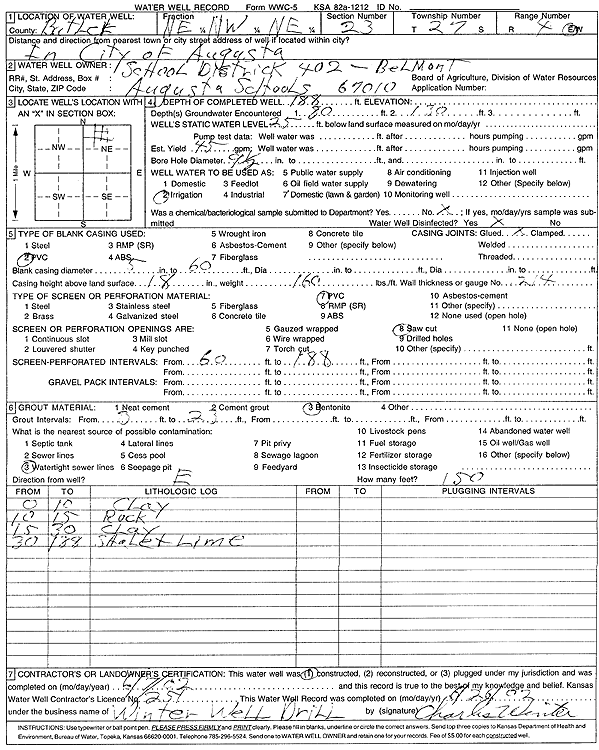 WATER WELL RECORD Form WWC-5 KSA 82a-1212 ID No.
1 LOCATION OF WATER WELL: Fraction Section Number Township Number Range Number
County: Butler NE ¼ NW ¼ NE ¼ 23 T 27 S R 4 E/W
Distance and direction from nearest town or city street address of well if located within city?
In City of Augusta
2 WATER WELL OWNER: School District 402 - Belmont
RR#, St. Address, Box # : Board of Agriculture, Division of Water Resources
City, State, ZIP Code : Augusta Schools 67010 Application Number:
3 LOCATE WELL'S LOCATION WITH AN "X" IN SECTION BOX:
N
NW NE
W E
SW SE
S
1 Mile
4 DEPTH OF COMPLETED WELL 188 ft. ELEVATION:
Depth(s) Groundwater Encountered 1. 80 ft. 2. 130 ft. 3. ft.
WELL'S STATIC WATER LEVEL 25 ft. below land surface measured on mo/day/yr
Pump test data: Well water was ft. after hours pumping gpm
Est. Yield 45 gpm; Well water was ft. after hours pumping gpm
Bore Hole Diameter in. to ft., and in. to ft.
WELL WATER TO BE USED AS: 5 Public water supply 8 Air conditioning 11 Injection well
1 Domestic 3 Feedlot 6 Oil field water supply 9 Dewatering 12 Other (Specify below)
2 Irrigation 4 Industrial 7 Domestic (lawn & garden) 10 Monitoring well
Was a chemical/bacteriological sample submitted to Department? Yes No X ; If yes, mo/day/yrs sample was submitted
Water Well Disinfected? Yes X No
5 TYPE OF BLANK CASING USED: 5 Wrought iron 8 Concrete tile CASING JOINTS: Glued X Clamped
1 Steel 3 RMP (SR) 6 Asbestos-Cement 9 Other (specify below) Welded
2 PVC 4 ABS 7 Fiberglass Threaded
Blank casing diameter 5 in. to 60 ft., Dia in. to ft., Dia in. to ft.
Casing height above land surface 18 in., weight 160 lbs./ft. Wall thickness or gauge No. 214
TYPE OF SCREEN OR PERFORATION MATERIAL: 7 PVC 10 Asbestos-cement
1 Steel 3 Stainless steel 5 Fiberglass 8 RMP (SR) 11 Other (specify)
2 Brass 4 Galvanized steel 6 Concrete tile 9 ABS 12 None used (open hole)
SCREEN OR PERFORATION OPENINGS ARE: 5 Gauzed wrapped 8 Saw cut 11 None (open hole)
1 Continuous slot 3 Mill slot 6 Wire wrapped 9 Drilled holes
2 Louvered shutter 4 Key punched 7 Torch cut 10 Other (specify) ft.
SCREEN-PERFORATED INTERVALS: From 60 ft. to 188 ft., From ft. to ft.
From ft. to ft., From ft. to ft.
GRAVEL PACK INTERVALS: From ft. to ft., From ft. to ft.
From ft. to ft., From ft. to ft.
6 GROUT MATERIAL: 1 Neat cement 2 Cement grout 3 Bentonite 4 Other
Grout Intervals: From 3 ft. to 23 ft., From ft. to ft., From ft. to ft.
What is the nearest source of possible contamination: 10 Livestock pens 14 Abandoned water well
1 Septic tank 4 Lateral lines 7 Pit privy 11 Fuel storage 15 Oil well/Gas well
2 Sewer lines 5 Cess pool 8 Sewage lagoon 12 Fertilizer storage 16 Other (specify below)
3 Watertight sewer lines 6 Seepage pit 9 Feedyard 13 Insecticide storage
Direction from well? E How many feet? 150
FROM TO LITHOLOGIC LOG FROM TO PLUGGING INTERVALS
0 10 Clay
10 15 Rock
15 30 Clay
30 188 Shale & Lime
7 CONTRACTOR'S OR LANDOWNER'S CERTIFICATION: This water well was (1) constructed, (2) reconstructed, or (3) plugged under my jurisdiction and was
completed on (mo/day/year) and this record is true to the best of my knowledge and belief. Kansas
Water Well Contractor's Licence No. 251 This Water Well Record was completed on (mo/day/yr)
under the business name of Winter Well Drill by (signature) Charles Winter
INSTRUCTIONS: Use typewriter or ball point pen. PLEASE PRESS FIRMLY and PRINT clearly. Please fill in blanks, underline or circle the correct answers. Send top three copies to Kansas Department of Health and
Environment, Bureau of Water, Topeka, Kansas 66620-0001. Telephone 785-296-5524. Send one to WATER WELL OWNER and retain one for your records. Fee of $5.00 for each constructed well.